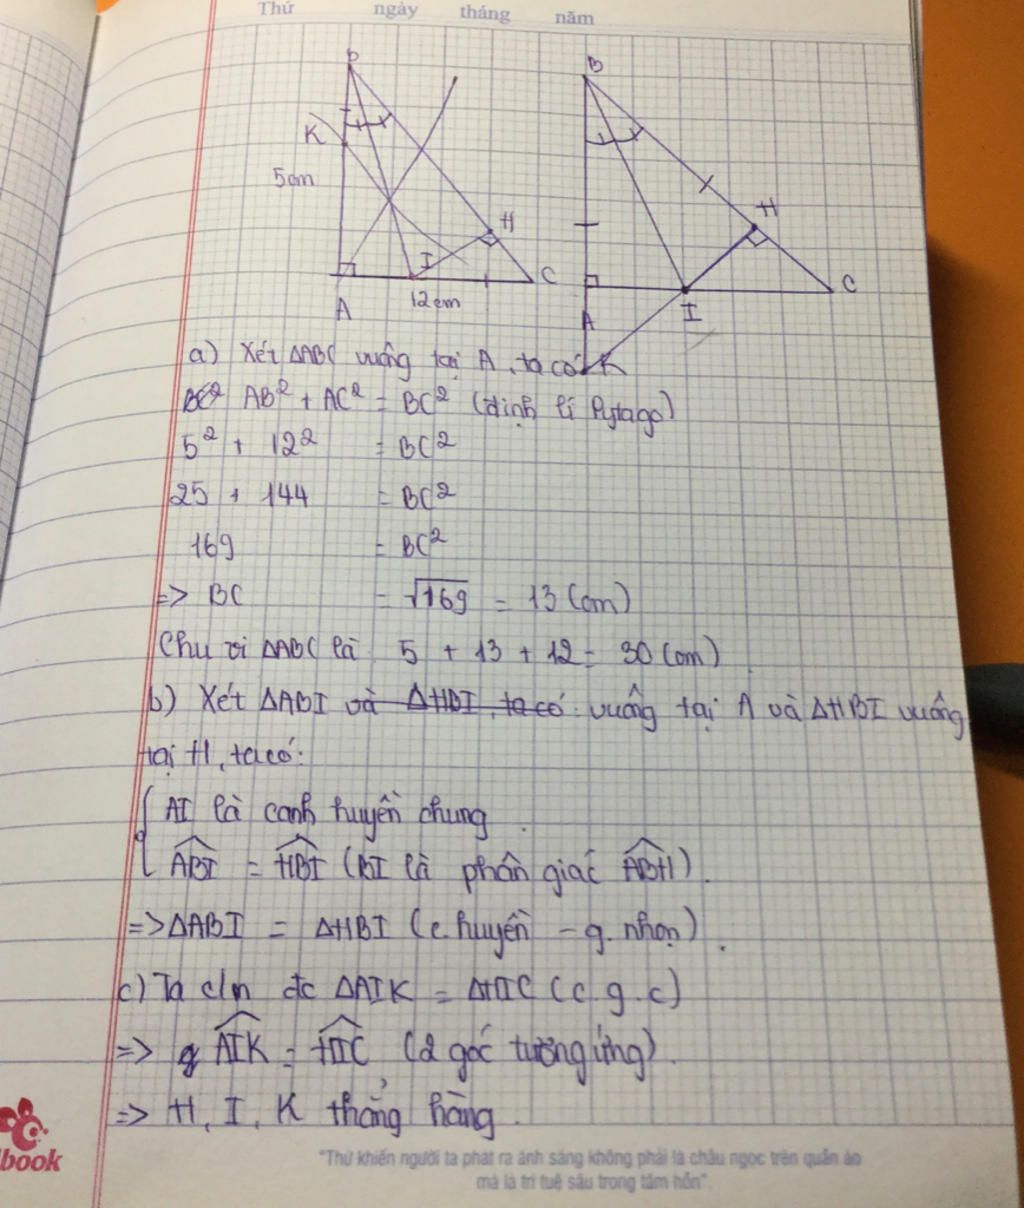 Thứ ngày tháng năm
B
K
5cm
H
I
C
A
12cm
B
H
C
I
A
K
a) Xét ΔABC vuông tại A, ta có
BC² AB² + AC² = BC² (định lí Pytago)
5² + 12² = BC²
25 + 144 = BC²
169 = BC²
=> BC = √169 = 13 (cm)
Chu vi ΔABC là 5 + 13 + 12 = 30 (cm)
b) Xét ΔABI và ΔHBI, ta có: vuông tại A và ΔHBI vuông
tại H, ta có:
AI là cạnh huyền chung.
ABI = HBI (BI là phân giác ABH).
=> ΔABI = ΔHBI (c.huyền - g.nhọn).
c) Ta c/m đc ΔAIK = ΔHIC (c.g.c)
=> AIK = HIC (2 góc tương ứng).
=> H, I, K thẳng hàng.
book
"Thứ khiến người ta phát ra ánh sáng không phải là châu ngọc trên quần áo
mà là trí tuệ sâu trong tâm hồn".